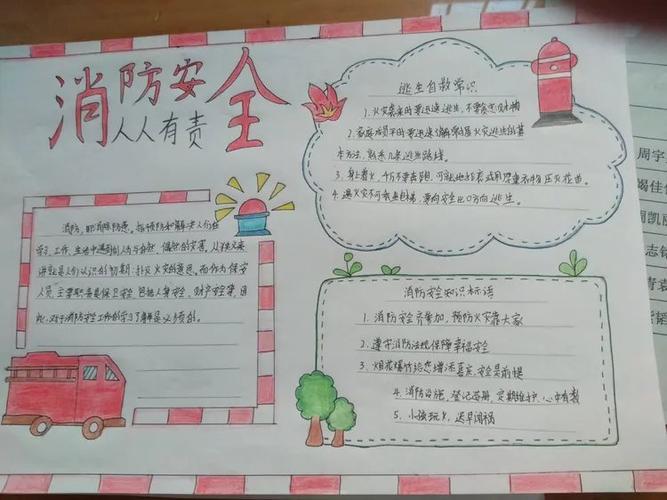 消防安全
人人有责
消防,即消除隐患,指预防和解决人们在
学习、工作、生活中遇到的人为与自然、偶然的灾害。从狭义来
讲就是人们认识的初期:扑灭火灾的意思。而作为保安
人员主要职责是保卫安全,包括人身安全、财产安全等。因
此,对于消防安全工作的学习了解是必须的。
逃生自救常识
1.火灾袭来时要迅速逃生,不要贪恋财物
2.家庭成员平时要迅速了解掌握火灾逃生的基
本方法,熟悉几条逃生路线。
3.身上着火,千万不要奔跑,可就地打滚或用厚重衣物压灭火苗。
4.遇火灾不可乘坐电梯,要向安全出口方向逃生。
消防安全知识标语
1.消防安全齐参加,预防火灾靠大家
2.遵守消防法规保障幸福安全
3.烟花爆竹给您增添喜庆,安全是前提
4.消防设施,登记造册,定期维护,心中有数
5.小孩玩火,迟早闯祸
周宇
志铭